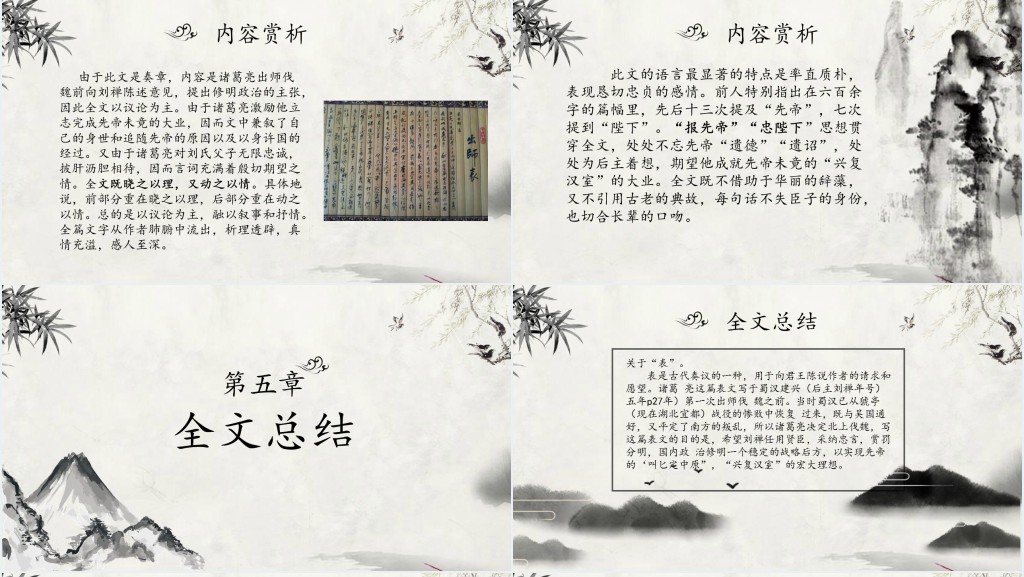 内容赏析
由于此文是奏章，内容是诸葛亮出师伐
魏前向刘禅陈述意见，提出修明政治的主张，
因此全文以议论为主。由于诸葛亮激励他立
志完成先帝未竟的大业，因而文中兼叙了自
己的身世和追随先帝的原因以及以身许国的
经过。又由于诸葛亮对刘氏父子无限忠诚，
披肝沥胆相待，因而言词充满着殷切期望之
情。全文既晓之以理，又动之以情。具体地
说，前部分重在晓之以理，后部分重在动之
以情。总的是以议论为主，融以叙事和抒情。
全篇文字从作者肺腑中流出，析理透辟，真
情充溢，感人至深。
出師表
内容赏析
此文的语言最显著的特点是率直质朴，
表现恳切忠贞的感情。前人特别指出在六百余
字的篇幅里，先后十三次提及“先帝”，七次
提到“陛下”。“报先帝”“忠陛下”思想贯
穿全文，处处不忘先帝“遗德”“遗诏”，处
处为后主着想，期望他成就先帝未竟的“兴复
汉室”的大业。全文既不借助于华丽的辞藻，
又不引用古老的典故，每句话不失臣子的身份，
也切合长辈的口吻。
第五章
全文总结
全文总结
关于“表”。
表是古代奏议的一种，用于向君王陈说作者的请求和
愿望。诸葛 亮这篇表文写于蜀汉建兴（后主刘禅年号）
五年p27年）第一次出师伐 魏之前。当时蜀汉已从猇亭
（现在湖北宜都）战役的惨败中恢复 过来，既与吴国通
好，又平定了南方的叛乱，所以诸葛亮决定北上伐魏，写
这篇表文的目的是，希望刘禅任用贤臣，采纳忠言，赏罚
分明，国内政 治修明一个稳定的战略后方，以实现先帝
的‘叫匕定中原”，“兴复汉室”的宏大理想。